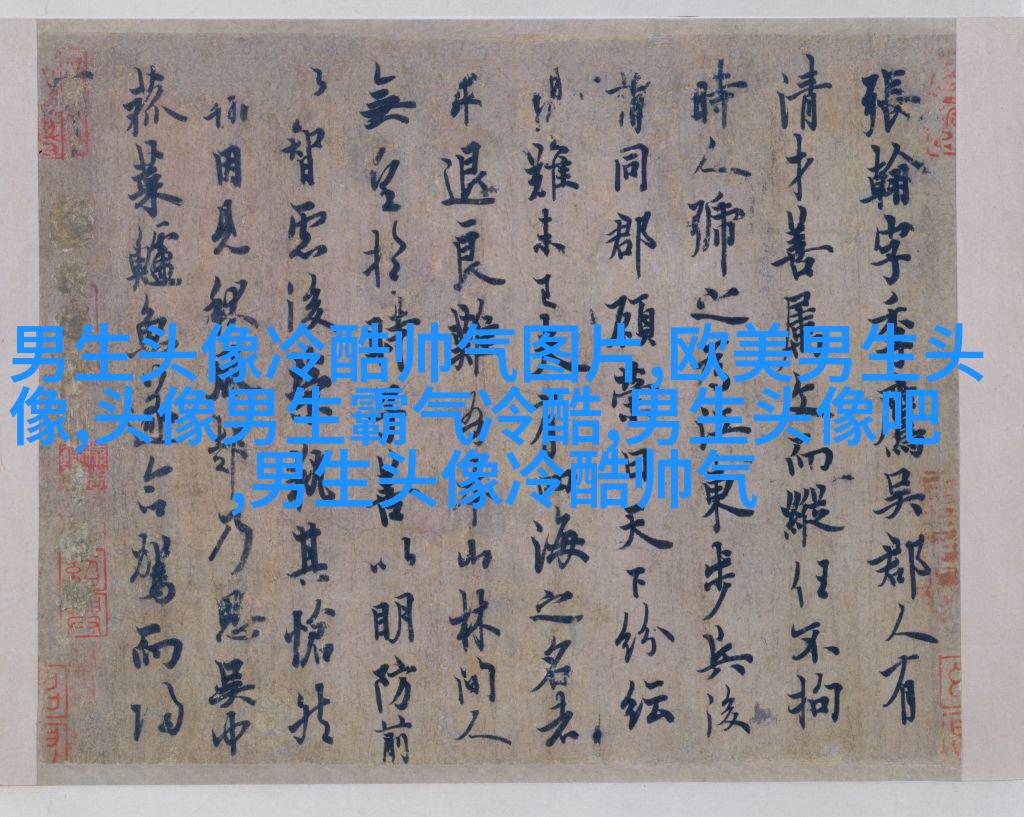 男生头像冷酷帅气图片,欧美男生头
像,头像男生霸气冷酷,男生头像吧
,男生头像冷酷帅气
張翰字季鷹吳郡人有
清才善屬文而縱任不拘
時人號之為江東步兵後
同郡顧榮曰天下紛紜
難未已夫有四海之名者
求退良難吾本山林間人
無望於時子善以明防前
智慮後榮執其愴然
因見秋風起乃思吳中
菰菜鱸魚命駕而歸